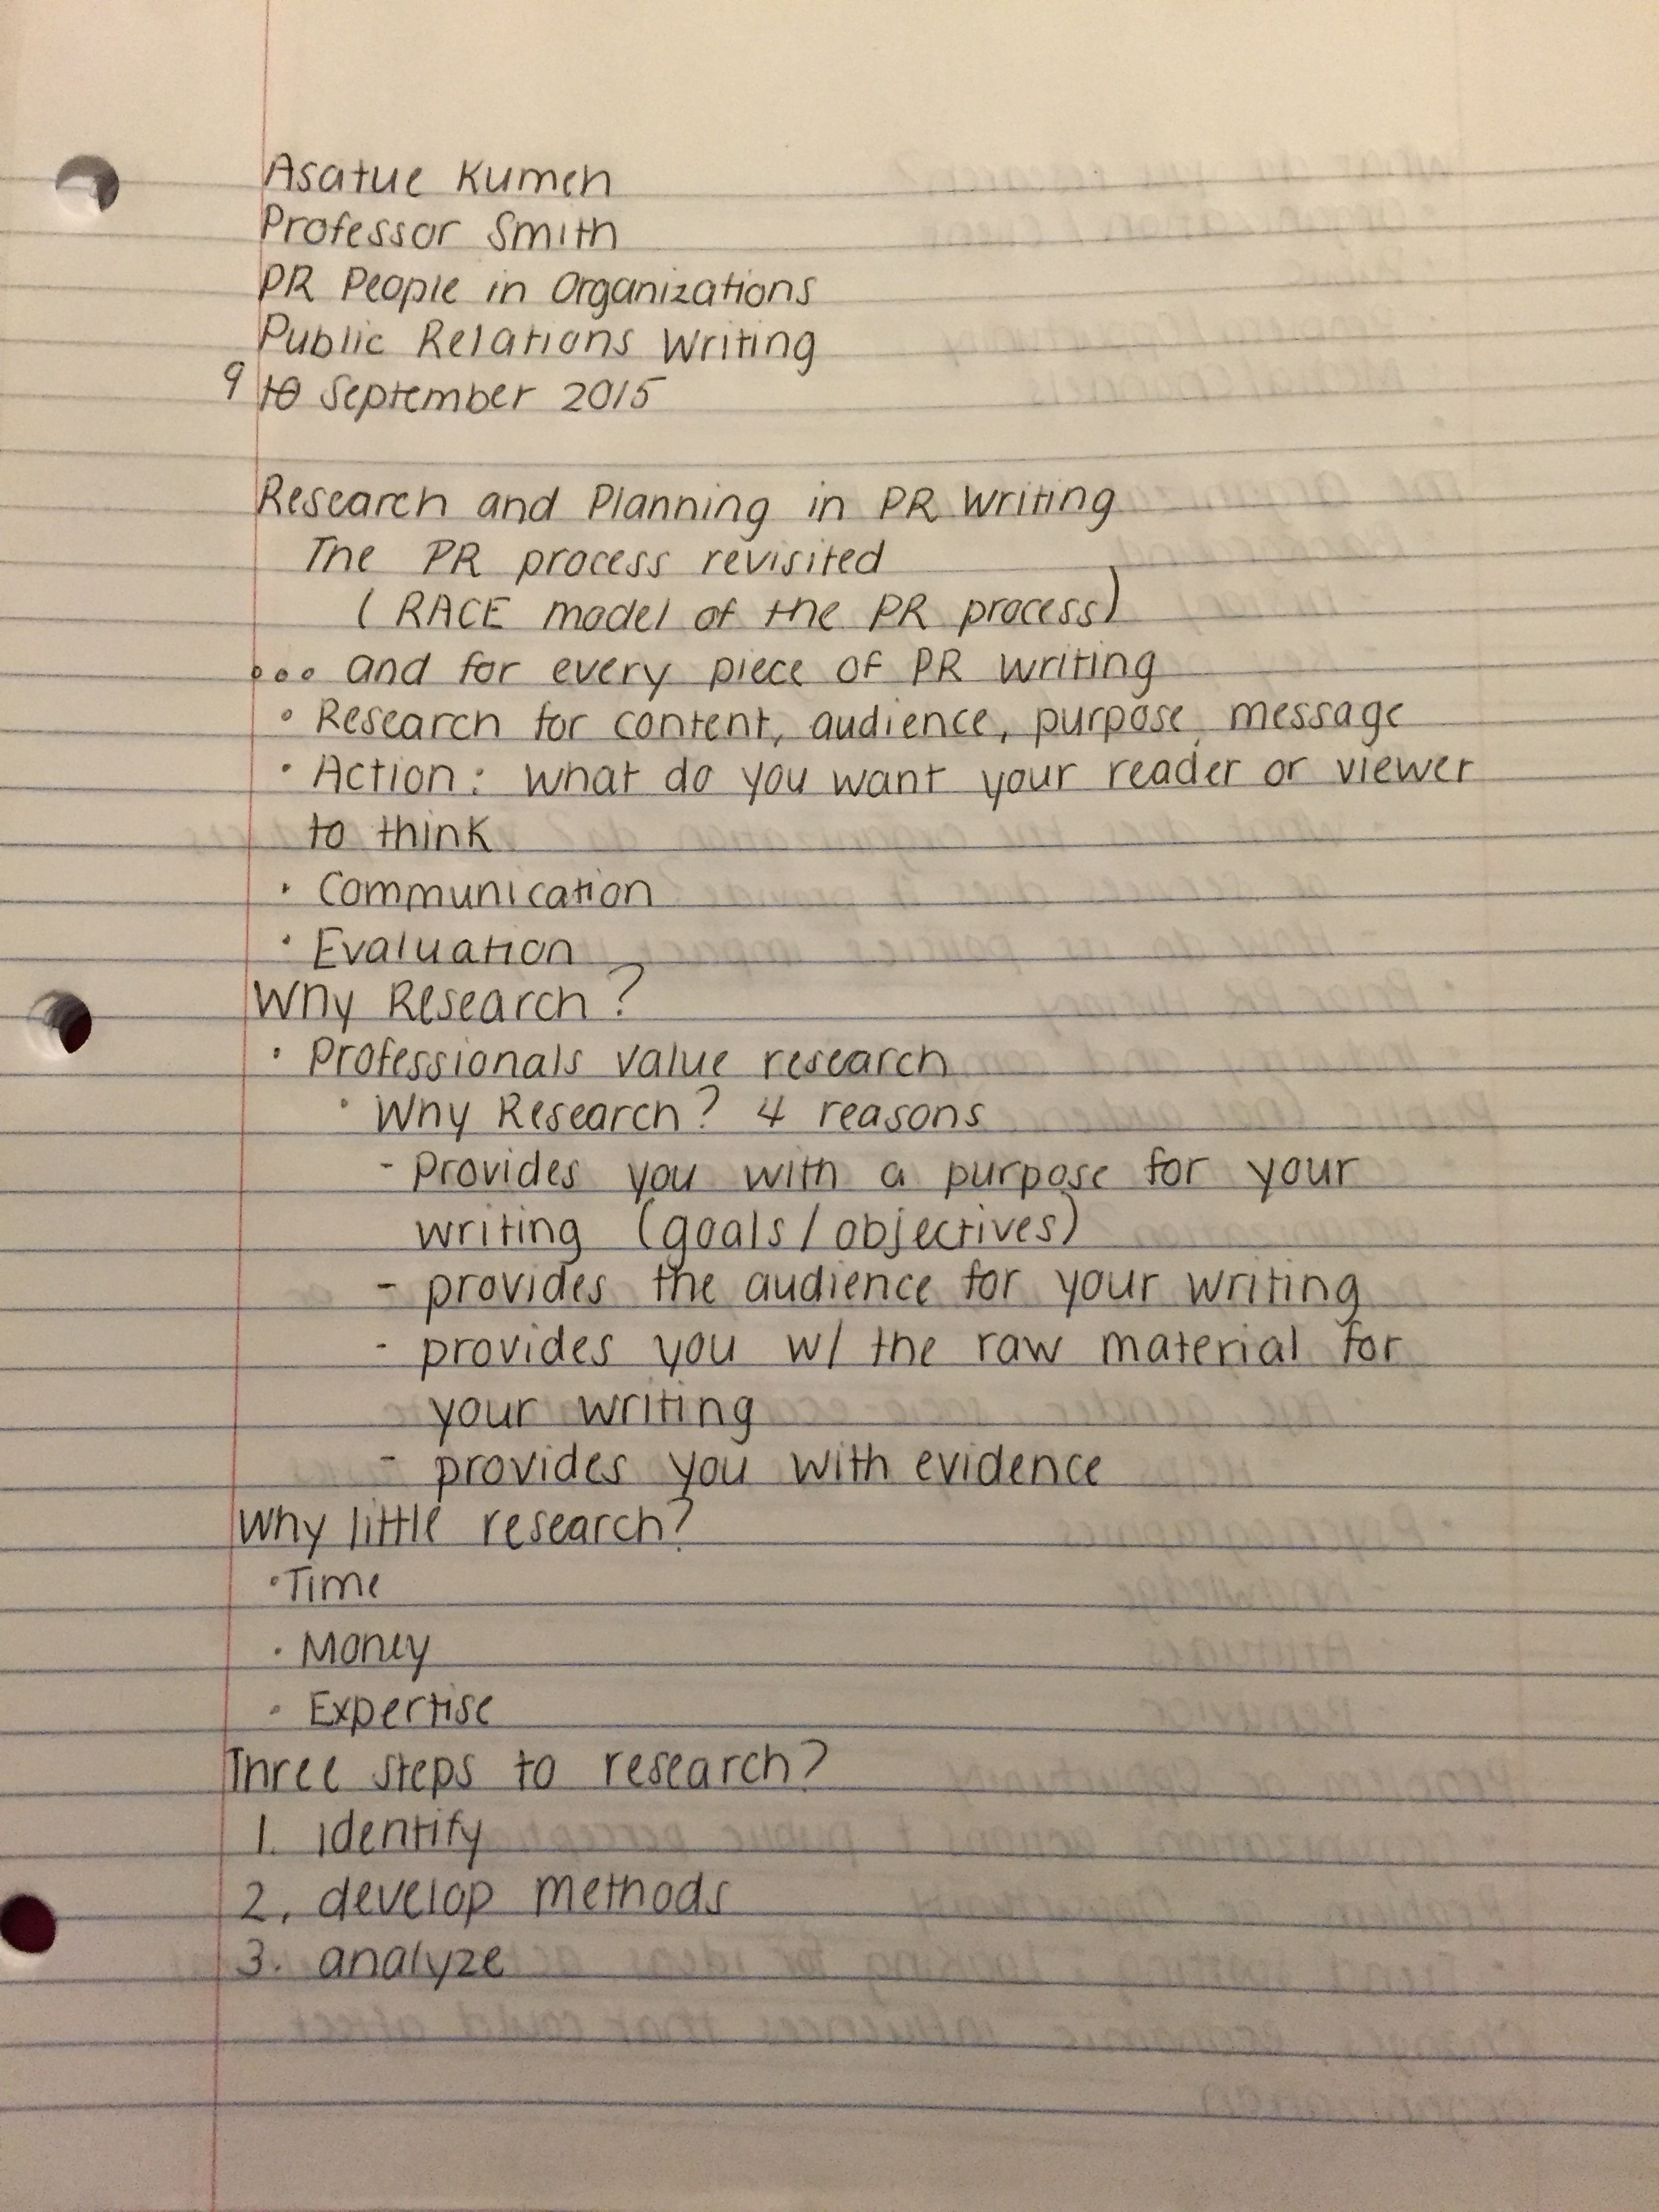 Asatue Kumeh
Professor Smith
PR People in Organizations
Public Relations Writing
9 10 September 2015
Research and Planning in PR Writing
The PR process revisited
(RACE model of the PR process)
... and for every piece of PR writing
• Research for content, audience, purpose, message
• Action: what do you want your reader or viewer
to think
• Communication
• Evaluation
Why Research?
• Professionals value research
• Why Research? 4 reasons
- Provides you with a purpose for your
writing (goals/objectives)
- provides the audience for your writing
- provides you w/ the raw material for
your writing
- provides you with evidence
Why little research?
• Time
• Money
• Expertise
Three steps to research?
1. identify
2. develop methods
3. analyze